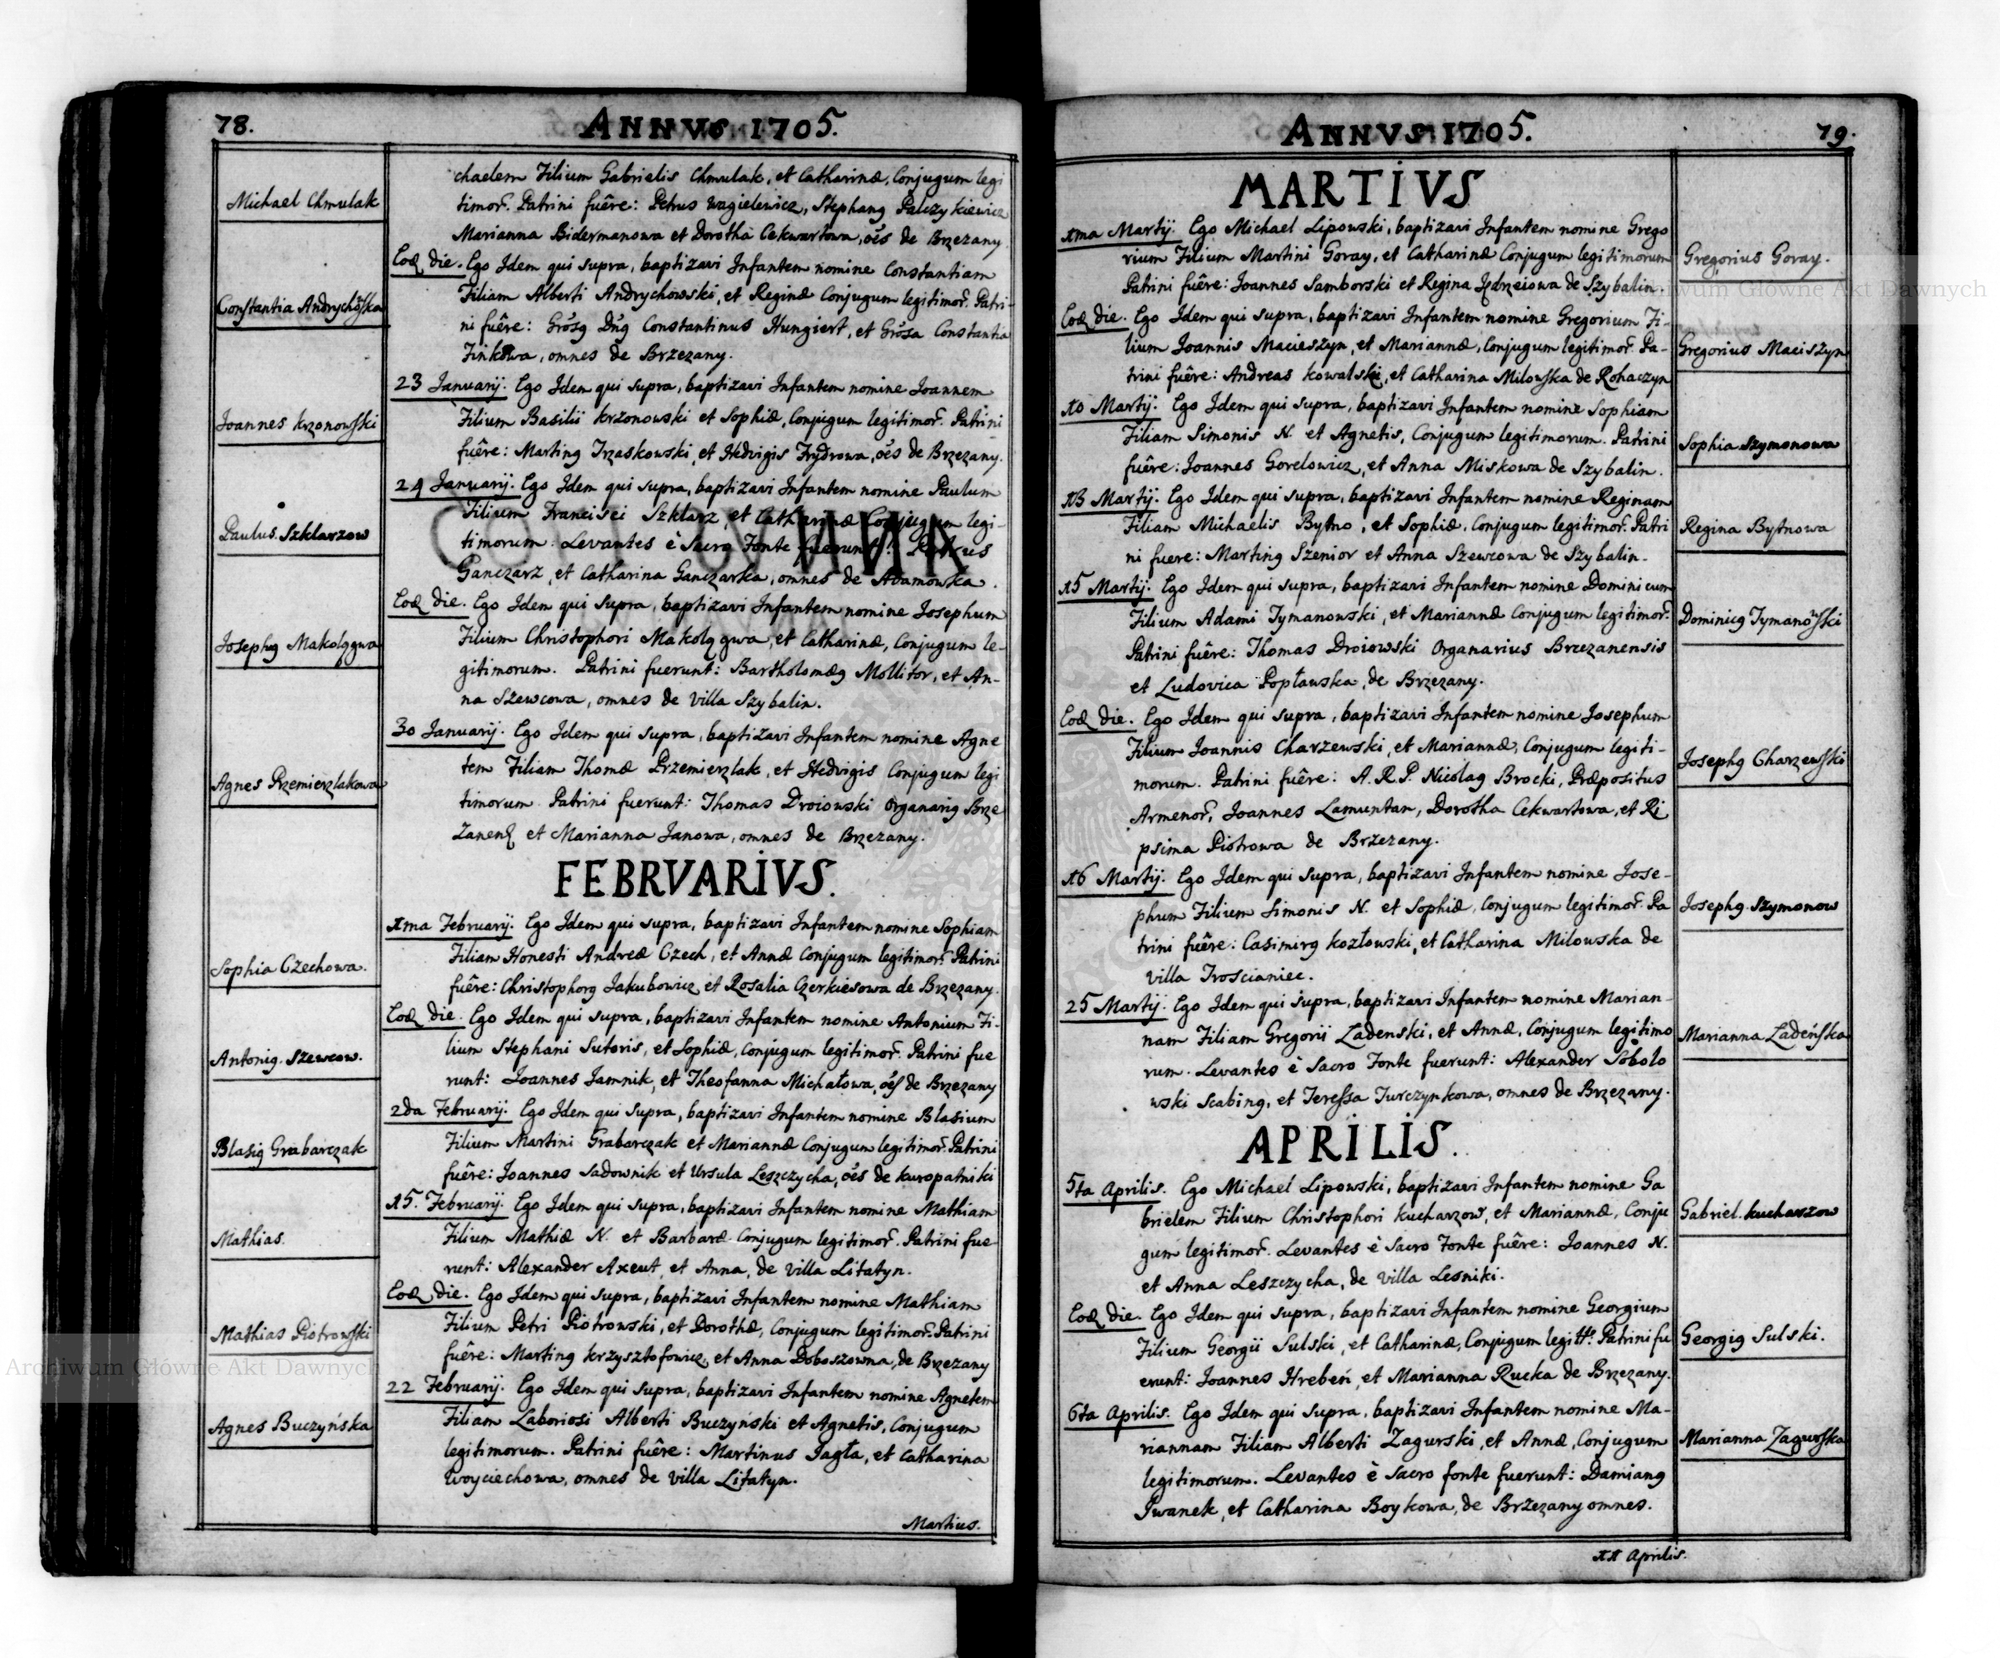 78.
ANNVS 1705.
Michael Chmulak
chaelem Filium Gabrielis Chmulak, et Catharinæ, Conjugum legi
timor. Patrini fuêre: Petrus Wagielewicz, Stephang Palczykiewicz
Marianna Bidermanowa et Dorotha Cekwartowa, oẽs de Brzezany.
Eod. die. Ego Idem qui supra, baptizavi Infantem nomine Constantiam
Constantia Andrychoska
Filiam Alberti Andrychowski, et Reginæ Conjugum legitimor. Patri-
ni fuêre: Constantinus Hungiert, et Constantia
Finkowa, omnes de Brzezany.
23 Januarij. Ego Idem qui supra, baptizavi Infantem nomine Joannem
Joannes Krzonowski
Filium Basilii Krzonowski et Sophiæ, Conjugum legitimor. Patrini
fuêre: Marting Trzaskowski, et Hedvigis Frydrowa, oẽs de Brzezany.
24 Januarij. Ego Idem qui supra, baptizavi Infantem nomine Paulum
Paulus Szklarzow
Filium Francisci Szklarz, et Catharinæ Conjugum legi-
timorum. Levantes è Sacro Fonte fuerunt: Petrus
Ganczarz, et Catharina Ganczarka, omnes de Adamowka.
Eod. die. Ego Idem qui supra, baptizavi Infantem nomine Josephum
Josephg Makolągwa
Filium Christophori Makolągwa, et Catharinæ, Conjugum le-
gitimorum. Patrini fuerunt: Bartholomæg Mollitor, et An-
na Szewcowa, omnes de villa Szybalin.
30 Januarij. Ego Idem qui supra, baptizavi Infantem nomine Agne
Agnes Przemierzlakowa
tem Filiam Thomæ Przemierzlak, et Hedvigis Conjugum legi
timorum. Patrini fuerunt: Thomas Droiowski Organarig Brze
zanen. et Marianna Janowa, omnes de Brzezany.
FEBRVARIVS.
1ma Februarij. Ego Idem qui supra, baptizavi Infantem nomine Sophiam
Sophia Czechowa.
Filiam Honesti Andreæ Czech, et Annæ Conjugum legitimor. Patrini
fuêre: Christophorg Jakubowicz et Rosalia Czerkiesowa de Brzezany.
Eod. die. Ego Idem qui supra, baptizavi Infantem nomine Antonium Fi-
Antonig. Szewcow.
lium Stephani Sutoris, et Sophiæ, Conjugum legitimor. Patrini fue
runt: Joannes Jamnik, et Theofanna Michałowa, oẽs de Brzezany
2da Februarij. Ego Idem qui supra, baptizavi Infantem nomine Blasium
Blasig Grabarczak
Filium Martini Grabarczak et Mariannæ Conjugum legitimor. Patrini
fuêre: Joannes Sadownik et Ursula Leszczycha, oẽs de Kuropatniki
15. Februarij. Ego Idem qui supra, baptizavi Infantem nomine Mathiam
Mathias.
Filium Mathiæ N. et Barbaræ Conjugum legitimor. Patrini fue
runt: Alexander Axeut, et Anna, de villa Litatyn.
Eod. die. Ego Idem qui supra, baptizavi Infantem nomine Mathiam
Mathias Piotrowski
Filium Petri Piotrowski, et Dorothæ, Conjugum legitimor. Patrini
fuêre: Marting Krzysztofowicz, et Anna Doboszowna, de Brzezany
22 Februarij. Ego Idem qui supra, baptizavi Infantem nomine Agnetem
Agnes Buczyńska
Filiam Laboriosi Alberti Buczyński et Agnetis, Conjugum
legitimorum. Patrini fuêre: Martinus Jagła, et Catharina
Woyciechowa, omnes de villa Litatyn.
Martius.
ANNVS 1705.
79.
MARTIVS
1ma Martij. Ego Michael Lipowski, baptizavi Infantem nomine Grego
rium Filium Martini Goray, et Catharinæ Conjugum legitimorum
Gregorius Goray.
Patrini fuêre: Joannes Samborski et Regina Jędrzeiowa de Szybalin.
Eod. die. Ego Idem qui supra, baptizavi Infantem nomine Gregorium Fi-
lium Joannis Macieszyn, et Mariannæ, Conjugum legitimor. Pa-
Gregorius Maciszyn
trini fuêre: Andreas Kowalski, et Catharina Milowska de Rohaczyn
10 Martij. Ego Idem qui supra, baptizavi Infantem nomine Sophiam
Filiam Simonis N. et Agnetis, Conjugum legitimorum. Patrini
Sophia Szymonowa
fuêre: Joannes Gorelowicz, et Anna Miskowa de Szybalin.
13 Martij. Ego Idem qui supra, baptizavi Infantem nomine Reginam
Filiam Michaelis Bytno, et Sophiæ, Conjugum legitimor. Patri
Regina Bytnowa
ni fuere: Marting Szenior et Anna Szewcowa de Szybalin.
15 Martij. Ego Idem qui supra, baptizavi Infantem nomine Dominicum
Filium Adami Tymanowski, et Mariannæ Conjugum legitimor.
Dominicg Tymanoski
Patrini fuêre: Thomas Droiowski Organarius Brzezanensis
et Ludovica Popławska, de Brzezany.
Eod. die. Ego Idem qui supra, baptizavi Infantem nomine Josephum
Filium Joannis Charzewski, et Mariannæ, Conjugum legiti-
Josephg Charzewski
morum. Patrini fuêre: A. R. P. Nicolag Brocki, Præpositus
Armenor, Joannes Lamuntan, Dorotha Cekwartowa, et Ri
psima Piotrowa de Brzezany.
16 Martij. Ego Idem qui supra, baptizavi Infantem nomine Jose-
phum Filium Simonis N. et Sophiæ, Conjugum legitimor. Pa
Josephg. Szymonow
trini fuêre: Casimirg Kozłowski, et Catharina Milowska de
villa Troscianiec.
25 Martij. Ego Idem qui supra, baptizavi Infantem nomine Marian-
nam Filiam Gregorii Ladenski, et Annæ, Conjugum legitimo
Marianna Ladeńska
rum. Levantes è Sacro Fonte fuerunt: Alexander Sobolo
wski Scabing, et Teressa Turczynkowa, omnes de Brzezany.
APRILIS.
5ta Aprilis. Ego Michael Lipowski, baptizavi Infantem nomine Ga
brielem Filium Christophori Kucharzow, et Mariannæ, Conju
Gabriel. Kucharzow
gum legitimor. Levantes è Sacro Fonte fuêre: Joannes N.
et Anna Leszczycha, de villa Lesniki.
Eod. die. Ego Idem qui supra, baptizavi Infantem nomine Georgium
Filium Georgii Sulski, et Catharinæ, Conjugum legitt. Patrini fu
Georgig Sulski.
erunt: Joannes Hrebeń, et Marianna Rucka de Brzezany.
6ta Aprilis. Ego Idem qui supra, baptizavi Infantem nomine Ma-
riannam Filiam Alberti Zagurski, et Annæ, Conjugum
Marianna Zagurska
legitimorum. Levantes è Sacro fonte fuerunt: Damiang
Iwanek, et Catharina Boykowa, de Brzezany omnes.
11 Aprilis.
Archiwum Główne Akt Dawnych
Archiwum Główne Akt Dawnych